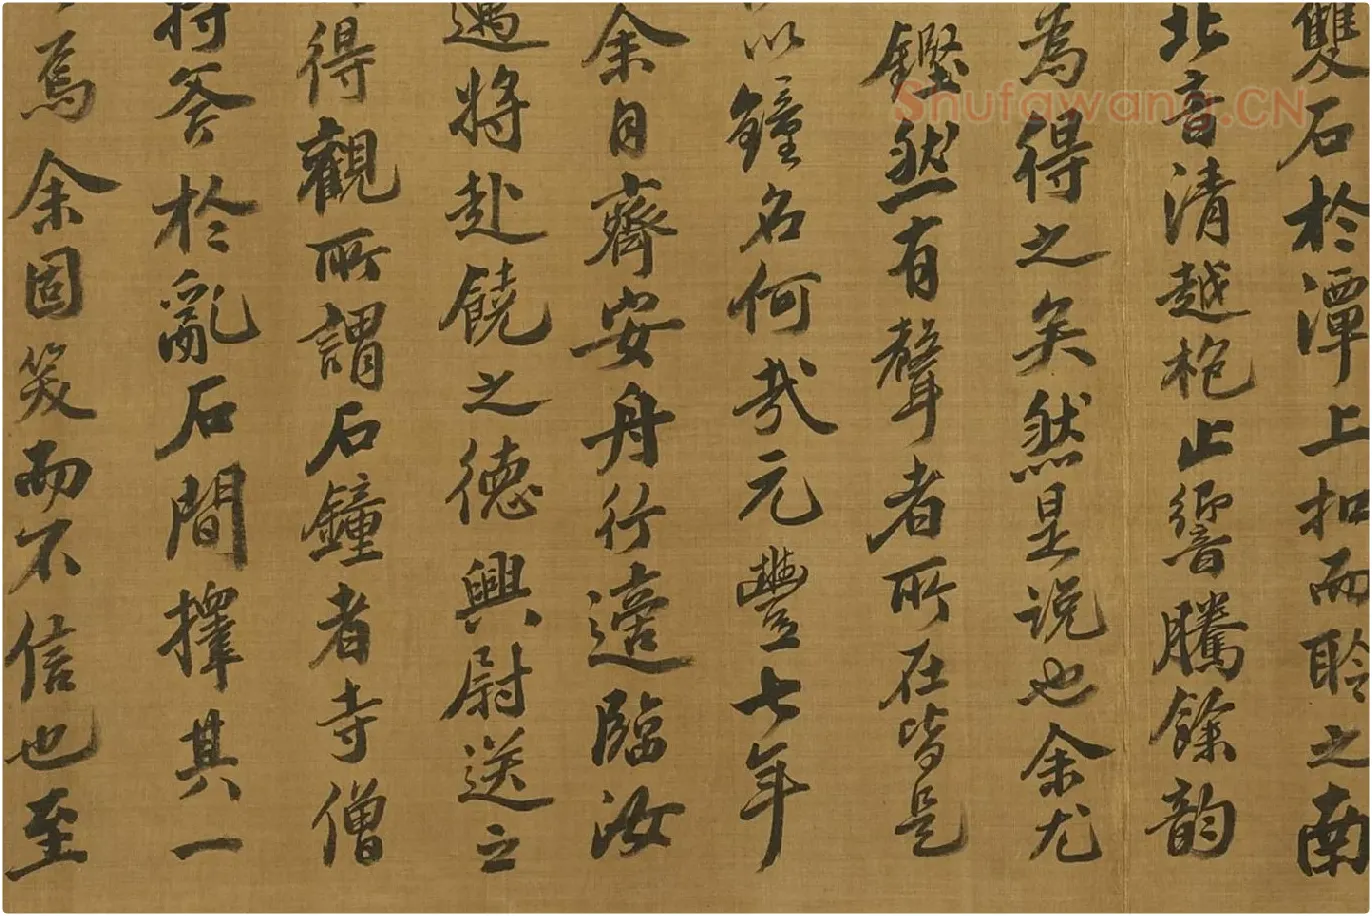 雙石於潭上扣而聆之南
北音清越枹止響騰餘韵
為得之矣然是説也余尤
鏗然有聲者所在皆是
以鐘名何哉元豐七年
余自齊安舟行適臨汝
邁將赴饒之德興尉送之
得觀所謂石鐘者寺僧
持斧於亂石間擇其一
焉余固笑而不信也至
Shufawang.CN